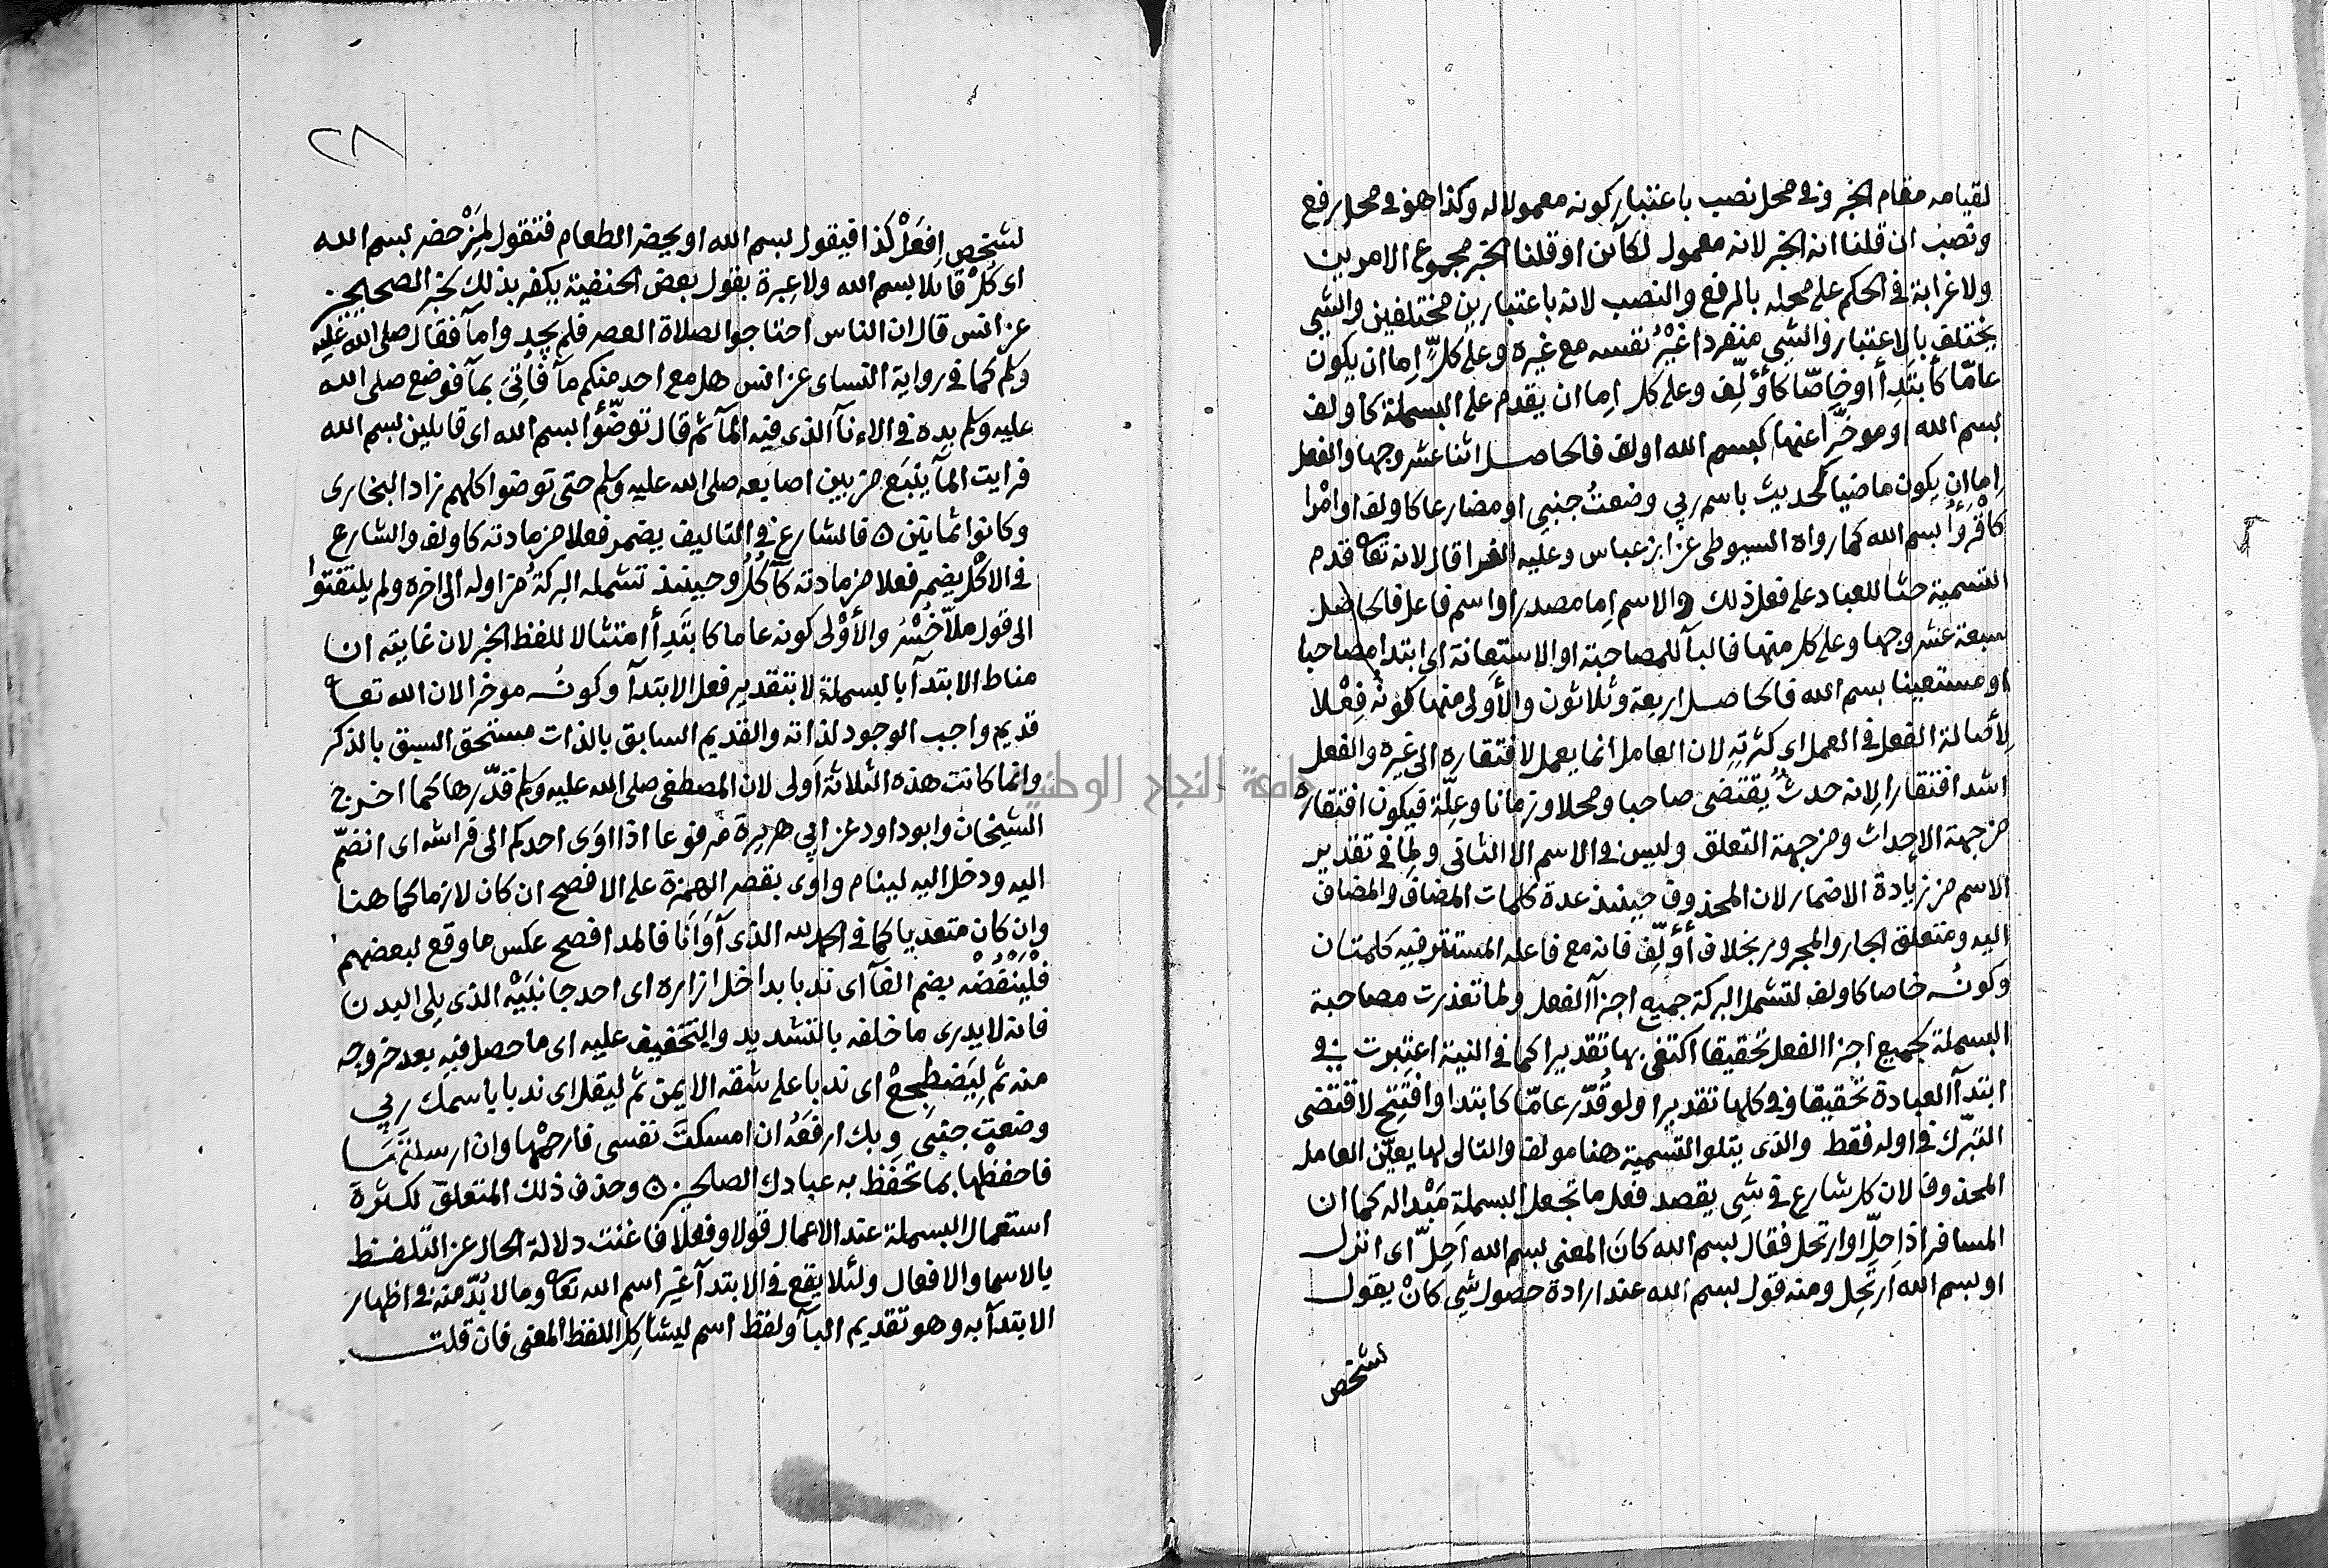 لقيامه مقام الخبر وفي محل نصب باعتبار كونه معمولا له وكذا هو في محل رفع
ونصب ان قلنا انه الخبر لانه معمول لكائن او قلنا الخبر مجموع الامرين
ولا غرابة في الحكم على محله بالرفع والنصب لانه باعتبارين مختلفين والشي
يختلف بالاعتبار والشي منفردا غَيْرُ نفسه مع غيره وعلى كلٍّ اِما ان يكون
عامّا كأبتَدِأ او خاصّا كأؤلِّف وعلى كل اِما ان يقدم على البسملة كاولف
بسم الله او موخَّرا عنها كبسم الله اولف فالحاصل اثنا عشر وجها والفعل
اِما ان يكون ماضيا كحديث باسم ربي وضعتُ جنبي او مضارعا كاولف او امْرا
كاقْرؤا بسم الله كما رواه السيوطي عن ابن عباس وعليه الفرا قال لانه تعا قدم
التسمية حثا للعباد على فعل ذلك والاسم اِما مصدرا واسم فاعل فالحاصل
سبعة عشر وجها وعلى كل منها فالبآ للمصاحبة او الاستعانة اي ابتدا مصاحبا
او مستعينا بسم الله فالحاصل اربعة وثلاثون والأَولى منها كونُه فِعْلا
لِأصالة الفعل في العمل اي كثرتِهِ لان العامل انما يعمل لافتقاره الى غيره والفعل
اشد افتقارا لِانه حدثٌ يُقتضى صاحبا ومحلا وزمانا وعِلّة فيكون افتقاره
من جهة الاحداث ومن جهة التعلق وليس في الاسم الا الثاني ولما في تقدير
الاسم من زيادة الاضمار لان المحذوف حينئذ عدة كلمات المضاف والمضاف
اليه ومتعلق الجار والمجرور بخلاف أُؤَلِّف فانه مع فاعله المستتر فيه كلمتان
وكونُه خاصا كاولف لتشمل البركة جميع اجزآ الفعل ولما تعذرت مصاحبة
البسملة لجميع اجزا الفعل تحقيقا اكتفي بها تقديرا كما في النية اعتبرت في
ابتدآ العبادة تحقيقا وفي كلها تقديرا ولو قُدّر عامّا كابتدا وافتتح لاقتضى
التبرّك في اوله فقط والذي يتلو التسمية هنا مولف والتالي لها يعيّن العامل
المحذوف لان كل شارع في شي يقصد فعل ما تجعل البسملة مَبْدا له كما ان
المسافر اذا حلّ او ارتحل فقال بسم الله كان المعنى بسم الله اَحِلّ اي انزل
او بسم الله ارتحل ومنه قول بسم الله عند ارادة حصول شي كانْ يقول
لشخص
٢٨
لشخص اِفعَلْ كذا فيقول بسم الله او يحضر الطعام فتقول لِمَنْ حضر بسم الله
اي كُلْ قايلا بسم الله ولا عِبرة بقول بعض الحنفية يكفر بذلك لخبر الصحيحين
عن انس قال ان الناس احتاجوا لصلاة العصر فلم يجدوا مآ فقال صلى الله عليه
وسلم كما في رواية النساي عن انس هل مع احد منكم مآ فأُتِيَ بمآ فوضع صلى الله
عليه وسلم يده في الاِنآ الذي فيه المآ ثم قال توضّؤا بسم الله اي قايلين بسم الله
فرايت المآ ينبَع من بين اصابعه صلى الله عليه وسلم حتى توضوا كلهم زاد البخاري
وكانوا ثمانين ه فالشارع في التاليف يضمر فعلا من مادته كاولف والشارع
في الاكْل يضمر فعلا من مادته كآكُلُ وحينئذ تشمله البركةُ من اوله الى اخره ولم يلتفتوا
الى قول ملّا خُسْرُ والأَوْلى كونه عاما كابتَدِأ امتثالا للفظ الخبر لان غايته ان
مناط الابتدآ بالبسملة لا بتقدير فعل الابتدآ وكونُه موخرا لان الله تعا
قديم واجب الوجود لذاته والقديم السابق بالذات مستحق السبق بالذكر
وانما كانت هذه الثلاثة اَولى لان المصطفى صلى الله عليه وسلم قدّرها كما اخرج
الشيخان وابو داود عن ابي هريرة مرفوعا اذا اوَى احدكم الى فراشه اي انضمّ
اليه ودخل اليه لينام واوى بقصر الهمزة على الافصح ان كان لازما كما هنا
وان كان متعديا كما في الحمد لله الذي آوَانَا فالمد افصح عكس ما وقع لبعضهم
فلْيَنْفُضْه بضم الفآ اي ندبا بداخل ازاره اي احد جانبَيْه الذي يلى البدن
فانه لا يدري ما خلفه بالتشديد والتخفيف عليه اي ما حصل فيه بعد خروجه
منه ثم لِيَضطجِعْ اي ندبا على شقه الايمن ثم ليقل اي ندبا باسمك ربي
وضعت جنبي وبك ارفَعُه ان امسكتَ نفسي فارحمْها وان ارسلتَها
فاحفظْها بما تحفَظ به عبادك الصالحين ه وحذف ذلك المتعلق لكثرة
استعمال البسملة عند الاعمال قولا وفعلا فاغنت دلالة الحال عن التلفظ
بالاسما والافعال ولئلا يقع في الابتدآ غير اسم الله تعا وما لا بُدّ منه في اظهار
الابتدآ به وهو تقديم البآ ولفظ اسم ليشاكِل اللفظ المعنى فان قلت
جامعة النجاح الوطنية